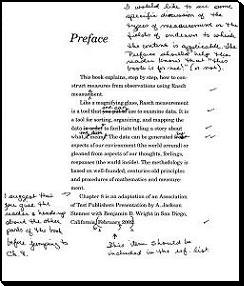 I would like to see some
specific discussion of the
types of measurement or the
fields of endeavor to which
the content is applicable. The
Preface should help the
reader know that "this
book is for me!" (or not).
Preface
This book explains, step by step, how to con-
struct measures from observations using Rasch
measurement.
Like a magnifying glass, Rasch measurement
is a tool that you put to use to examine data. It is
a tool for sorting, organizing, and mapping the
data in order to facilitate telling a story about
what they mean. The data can be generated
aspects of our environment (the world around) or
gleaned from aspects of our thoughts, feelings,
responses (the world inside). The methodology is
based on well-founded, centuries-old principles
and procedures of mathematics and measure-
ment.
Chapter 8 is an adaptation of an Association
of Test Publishers Presentation by A. Jackson
Stenner with Benjamin D. Wright in San Diego,
California, February 2002.
I suggest that
you give the
reader a heads up
about the other
parts of the book
before jumping to
Ch 8.
This item should be
included in the ref. list